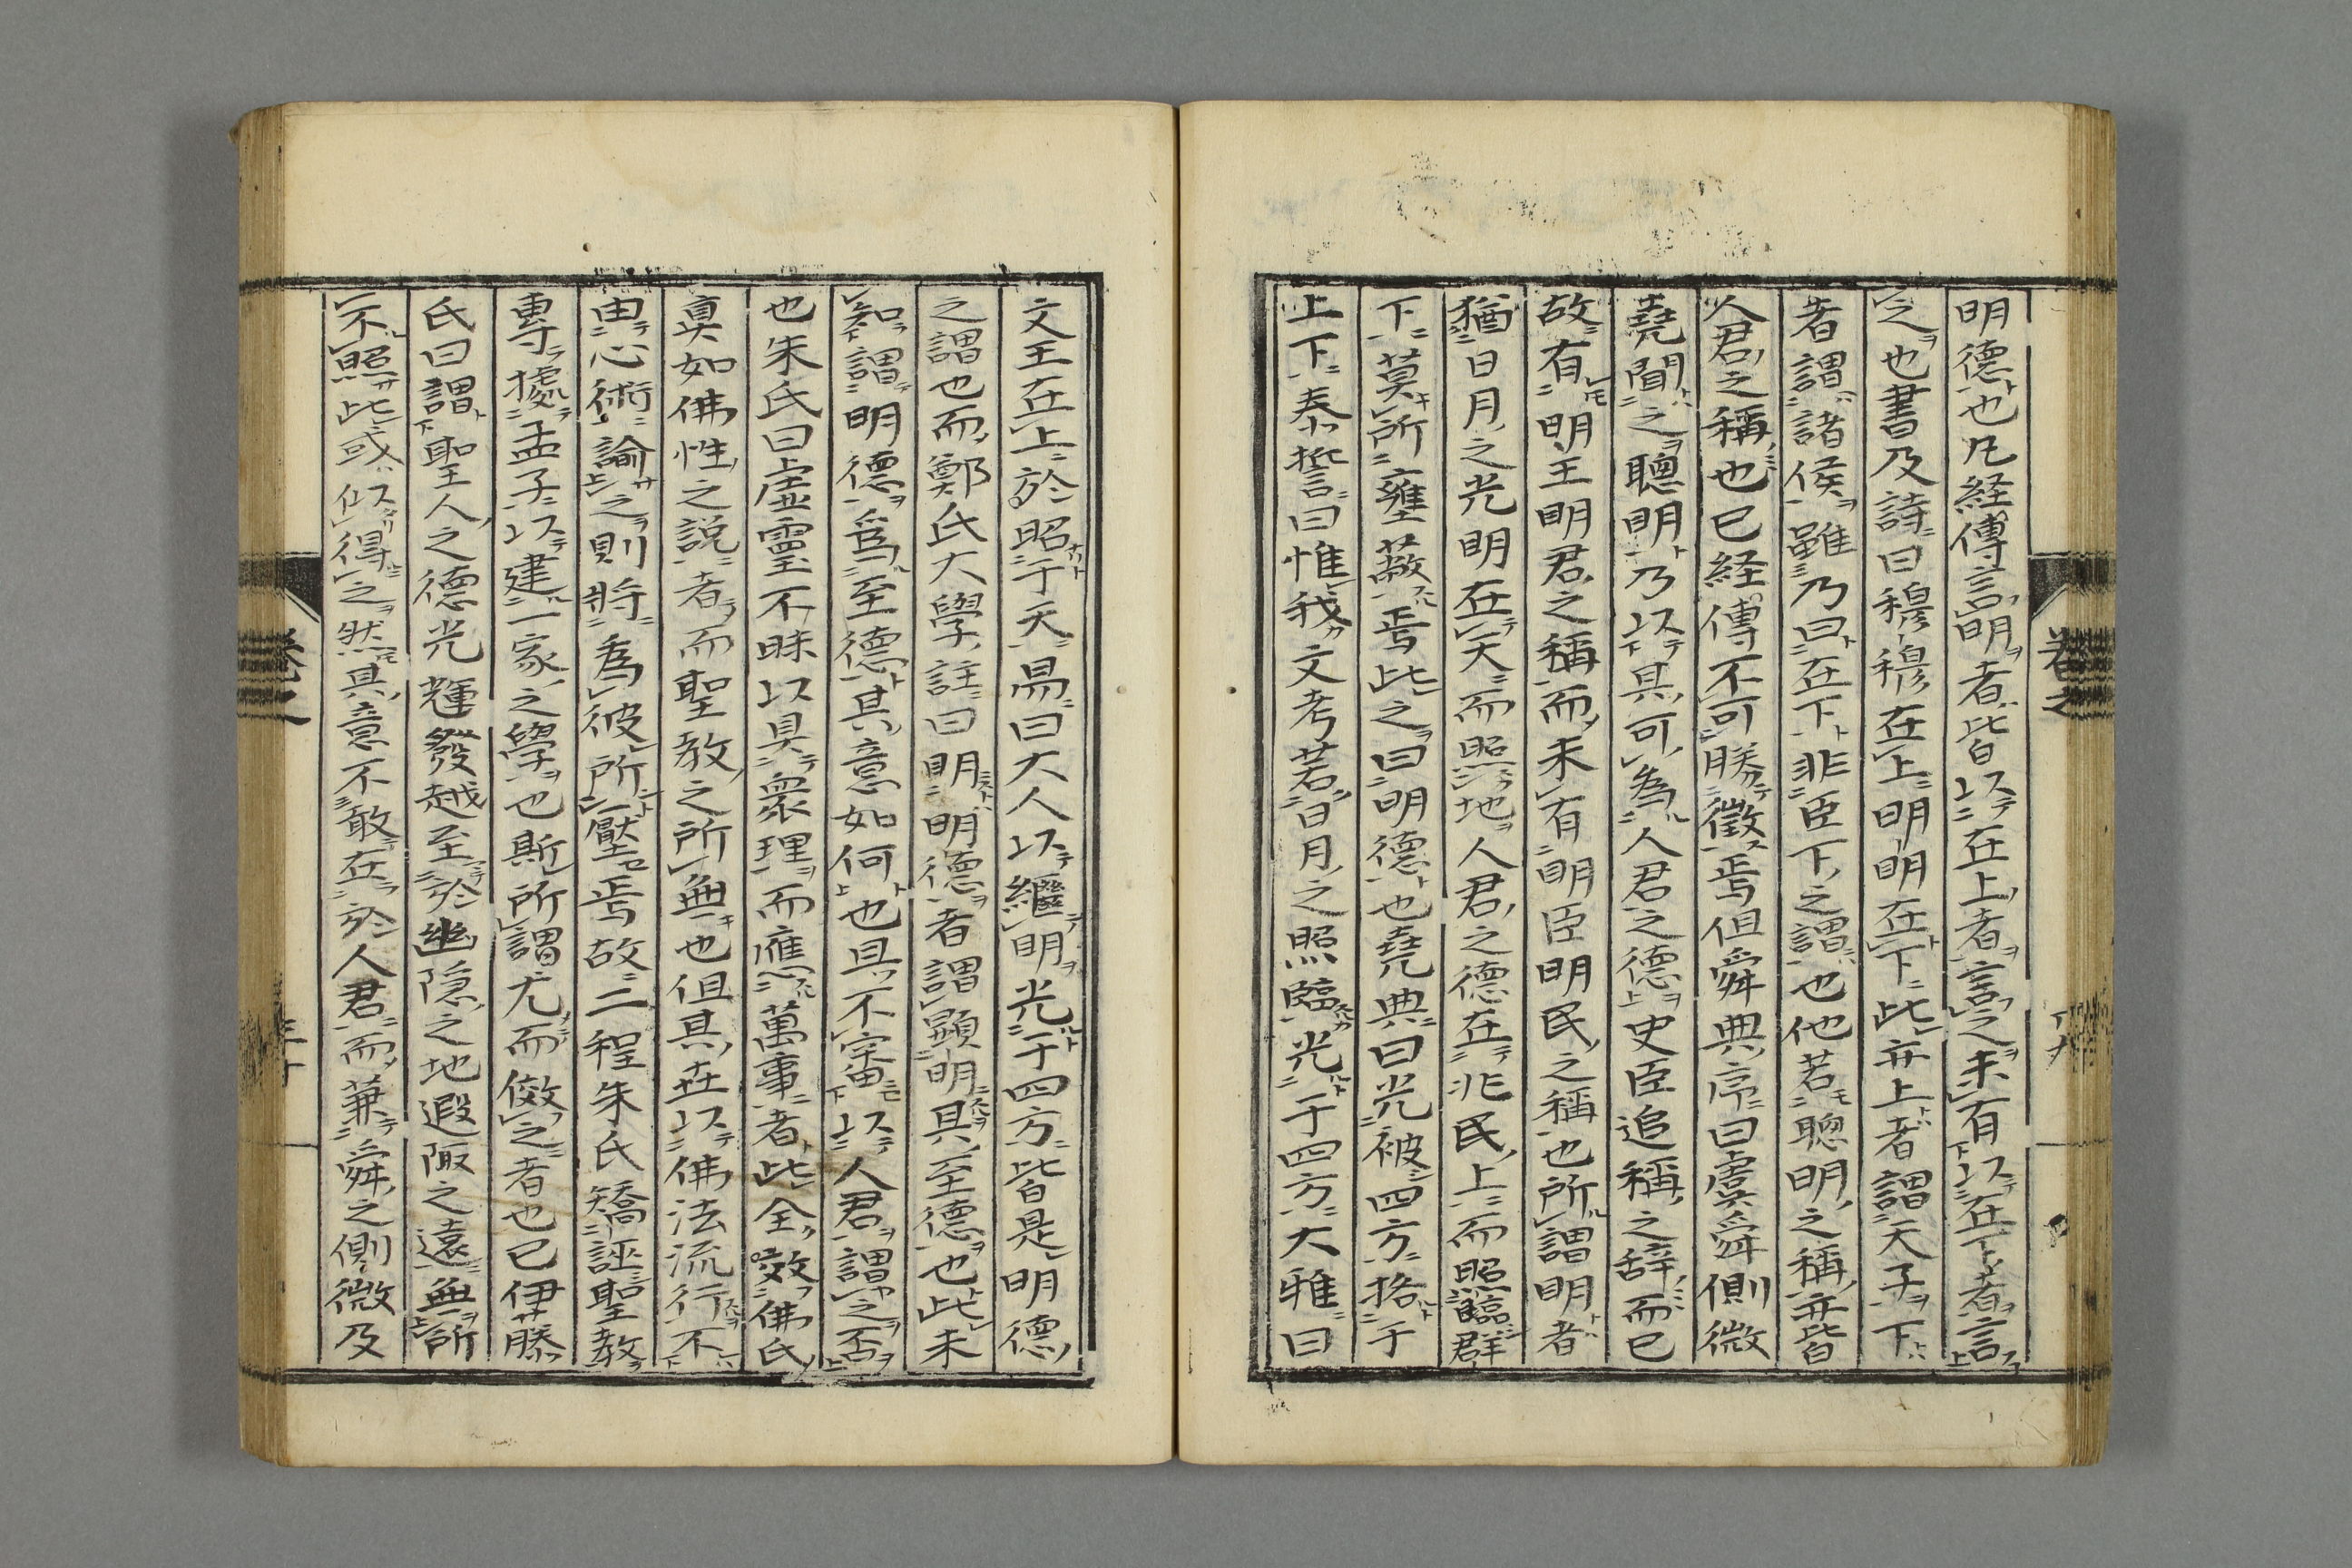 明德也凡経傳言明者皆以在上者言之未有以在下者言
之也書及詩曰穆穆在上明明在下此並上者謂天子下
者謂諸侯雖乃曰在下非臣下之謂也他若聰明之稱並皆
人君之稱也已経傳不可勝徵焉但舜典序曰虞舜側微
堯聞之聰明乃以其可為人君之德上史臣追稱之辞而已
故有明王明君之稱而未有明臣明民之稱也所謂明者
猶日月之光明在天而照地人君之德在兆民上而照臨群
下莫所壅蔽焉此之曰明德也堯典曰光被四方格于
上下泰誓曰惟我文考若日月之照臨光于四方大雅曰
卷之
十九
文王在上於昭于天易曰大人以繼明光于四方皆是明德
之謂也而鄭氏大學註曰明明德者謂顯明其至德也此未
知謂明德為至德其意如何也且不審以人君謂之否
也朱氏曰虛靈不昧以具衆理而應萬事者此全效佛氏
真如佛性之説者而聖教之所無也但其在以佛法流行不
由心術論之則將為彼所壓焉故二程朱氏矯誣聖教
專據孟子以建一家之學也斯所謂尤而傚之者也已伊藤
氏曰謂聖人之德光輝發越至於幽隠之地遐陬之遠無所
不照此或似得之然其意不敢在於人君而兼舜之側微及
卷之
二十